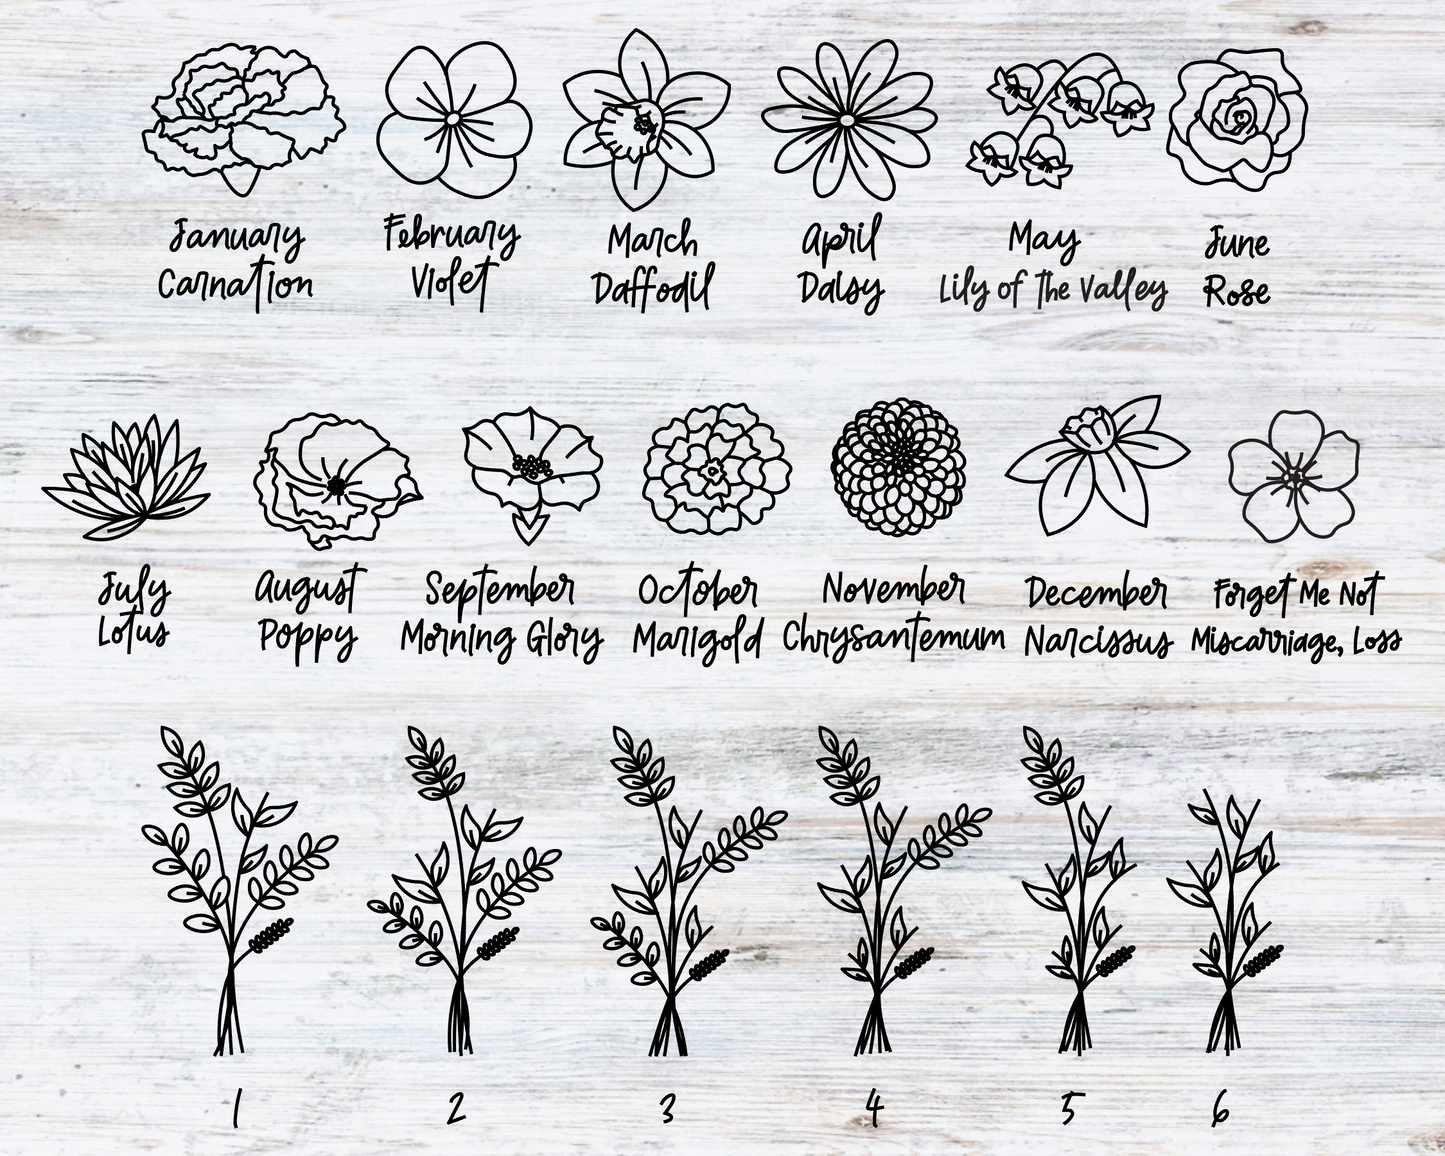 January
Carnation
February
Violet
March
Daffodil
April
Daisy
May
Lily of the Valley
June
Rose
July
Lotus
August
Poppy
September
Morning Glory
October
Marigold
November
Chrysantemum
December
Narcissus
Forget Me Not
Miscarriage, Loss
1
2
3
4
5
6